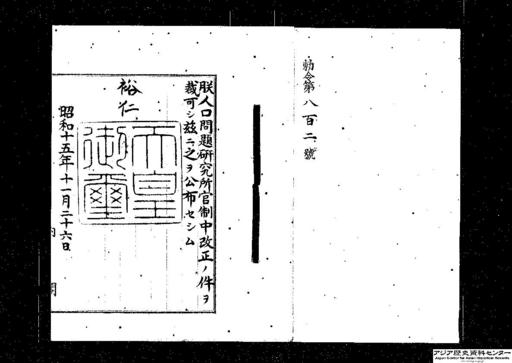 勅令第八百二號
朕人口問題研究所官制中改正ノ件ヲ
裁可シ茲ニ之ヲ公布セシム
裕仁
天皇
御璽
昭和十五年十一月二十六日
アジア歴史資料センター
Japan Center for Asian Historical Records